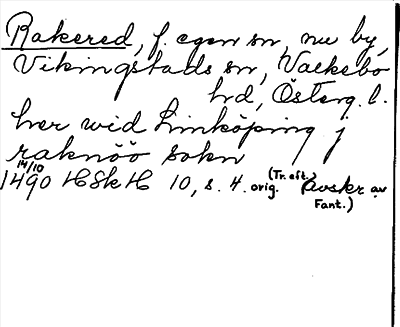 Rakered, f. egen sn, nu by,
Vikingstads sn, Valkebo
hd, Österg. l.
her wid Linköping j
raknöö sokn
14/10
1490 HSkH 10, s. 4. orig. (Tr. eft. Avskr av
Fant.)